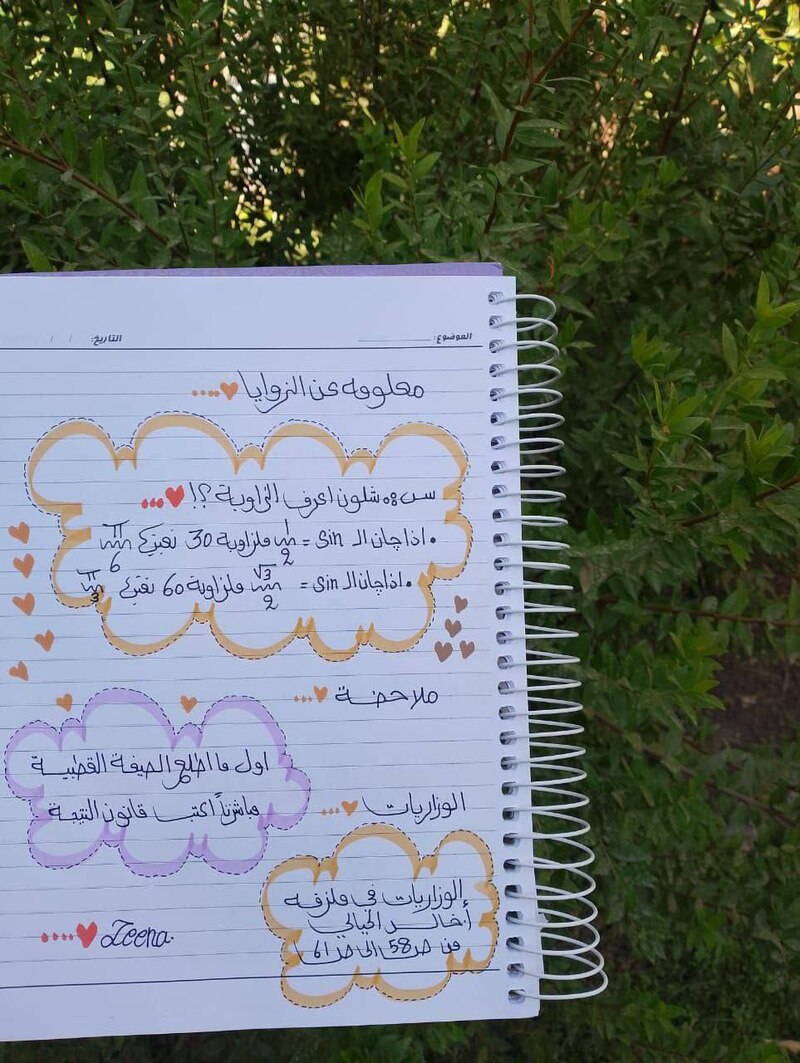 الموضوع:
التاريخ: / /
معلومه عن الزوايا
س٥: شلون اعرف الزاوية ؟!
• اذا چان الـ Sin = 1/2 فلزاوية 30 نعبرك π/6
• اذا چان الـ Sin = √3/2 فلزاوية 60 نعبرك π/3
ملاحضة
اول ما اطلع الصيغة القطبية
مباشرتاً اكتب قانون النتيجة
الوزاريات
الوزاريات في ملزمه
أ.خالد الحيالي
من صـ58 الى صـ61
Zeena.